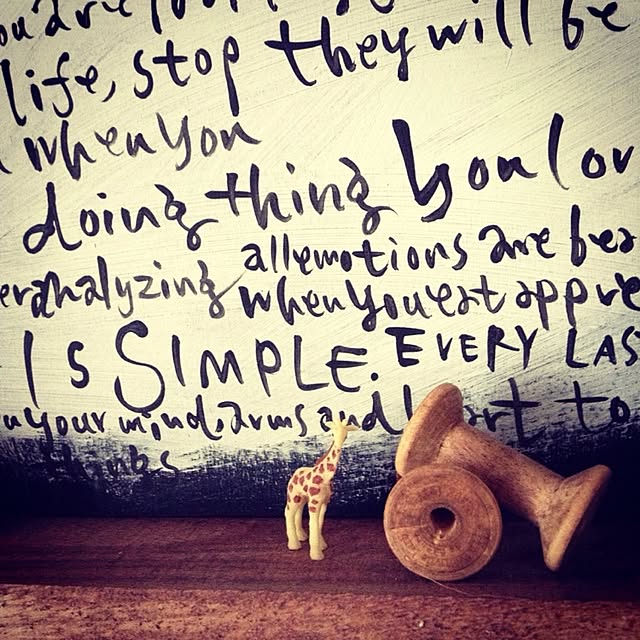 life, stop they will be
when you
doing thing you lov
analyzing all emotions are bea
when you eat appre
IS SIMPLE. EVERY LAS
your mind, arms and h art to
thinks